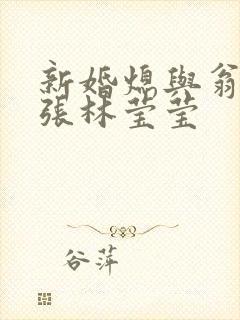 新婚熄與翁
張林莹莹
谷萍